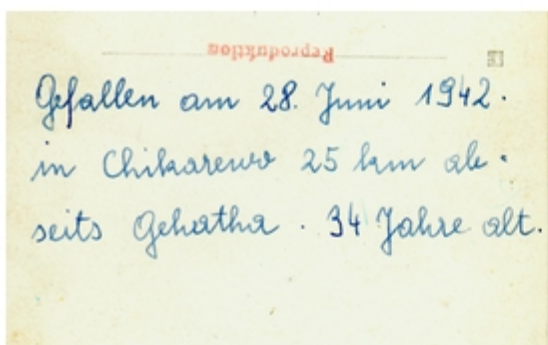 Reproduktion
Gefallen am 28. Juni 1942.
in Chikarewo 25 km ab-
seits Gehatha. 34 Jahre alt.